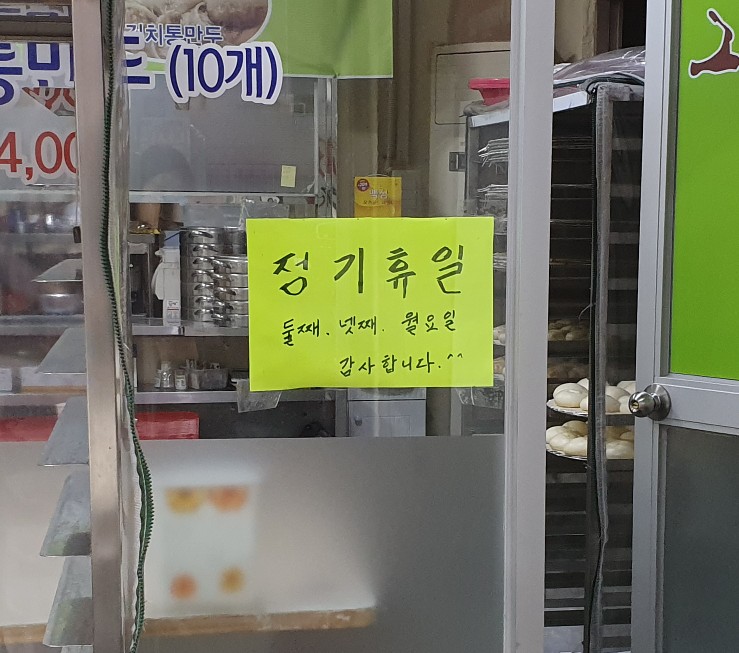 김치통만두
통만두 (10개)
4,00
정기휴일
둘째. 넷째. 월요일
감사합니다.^^